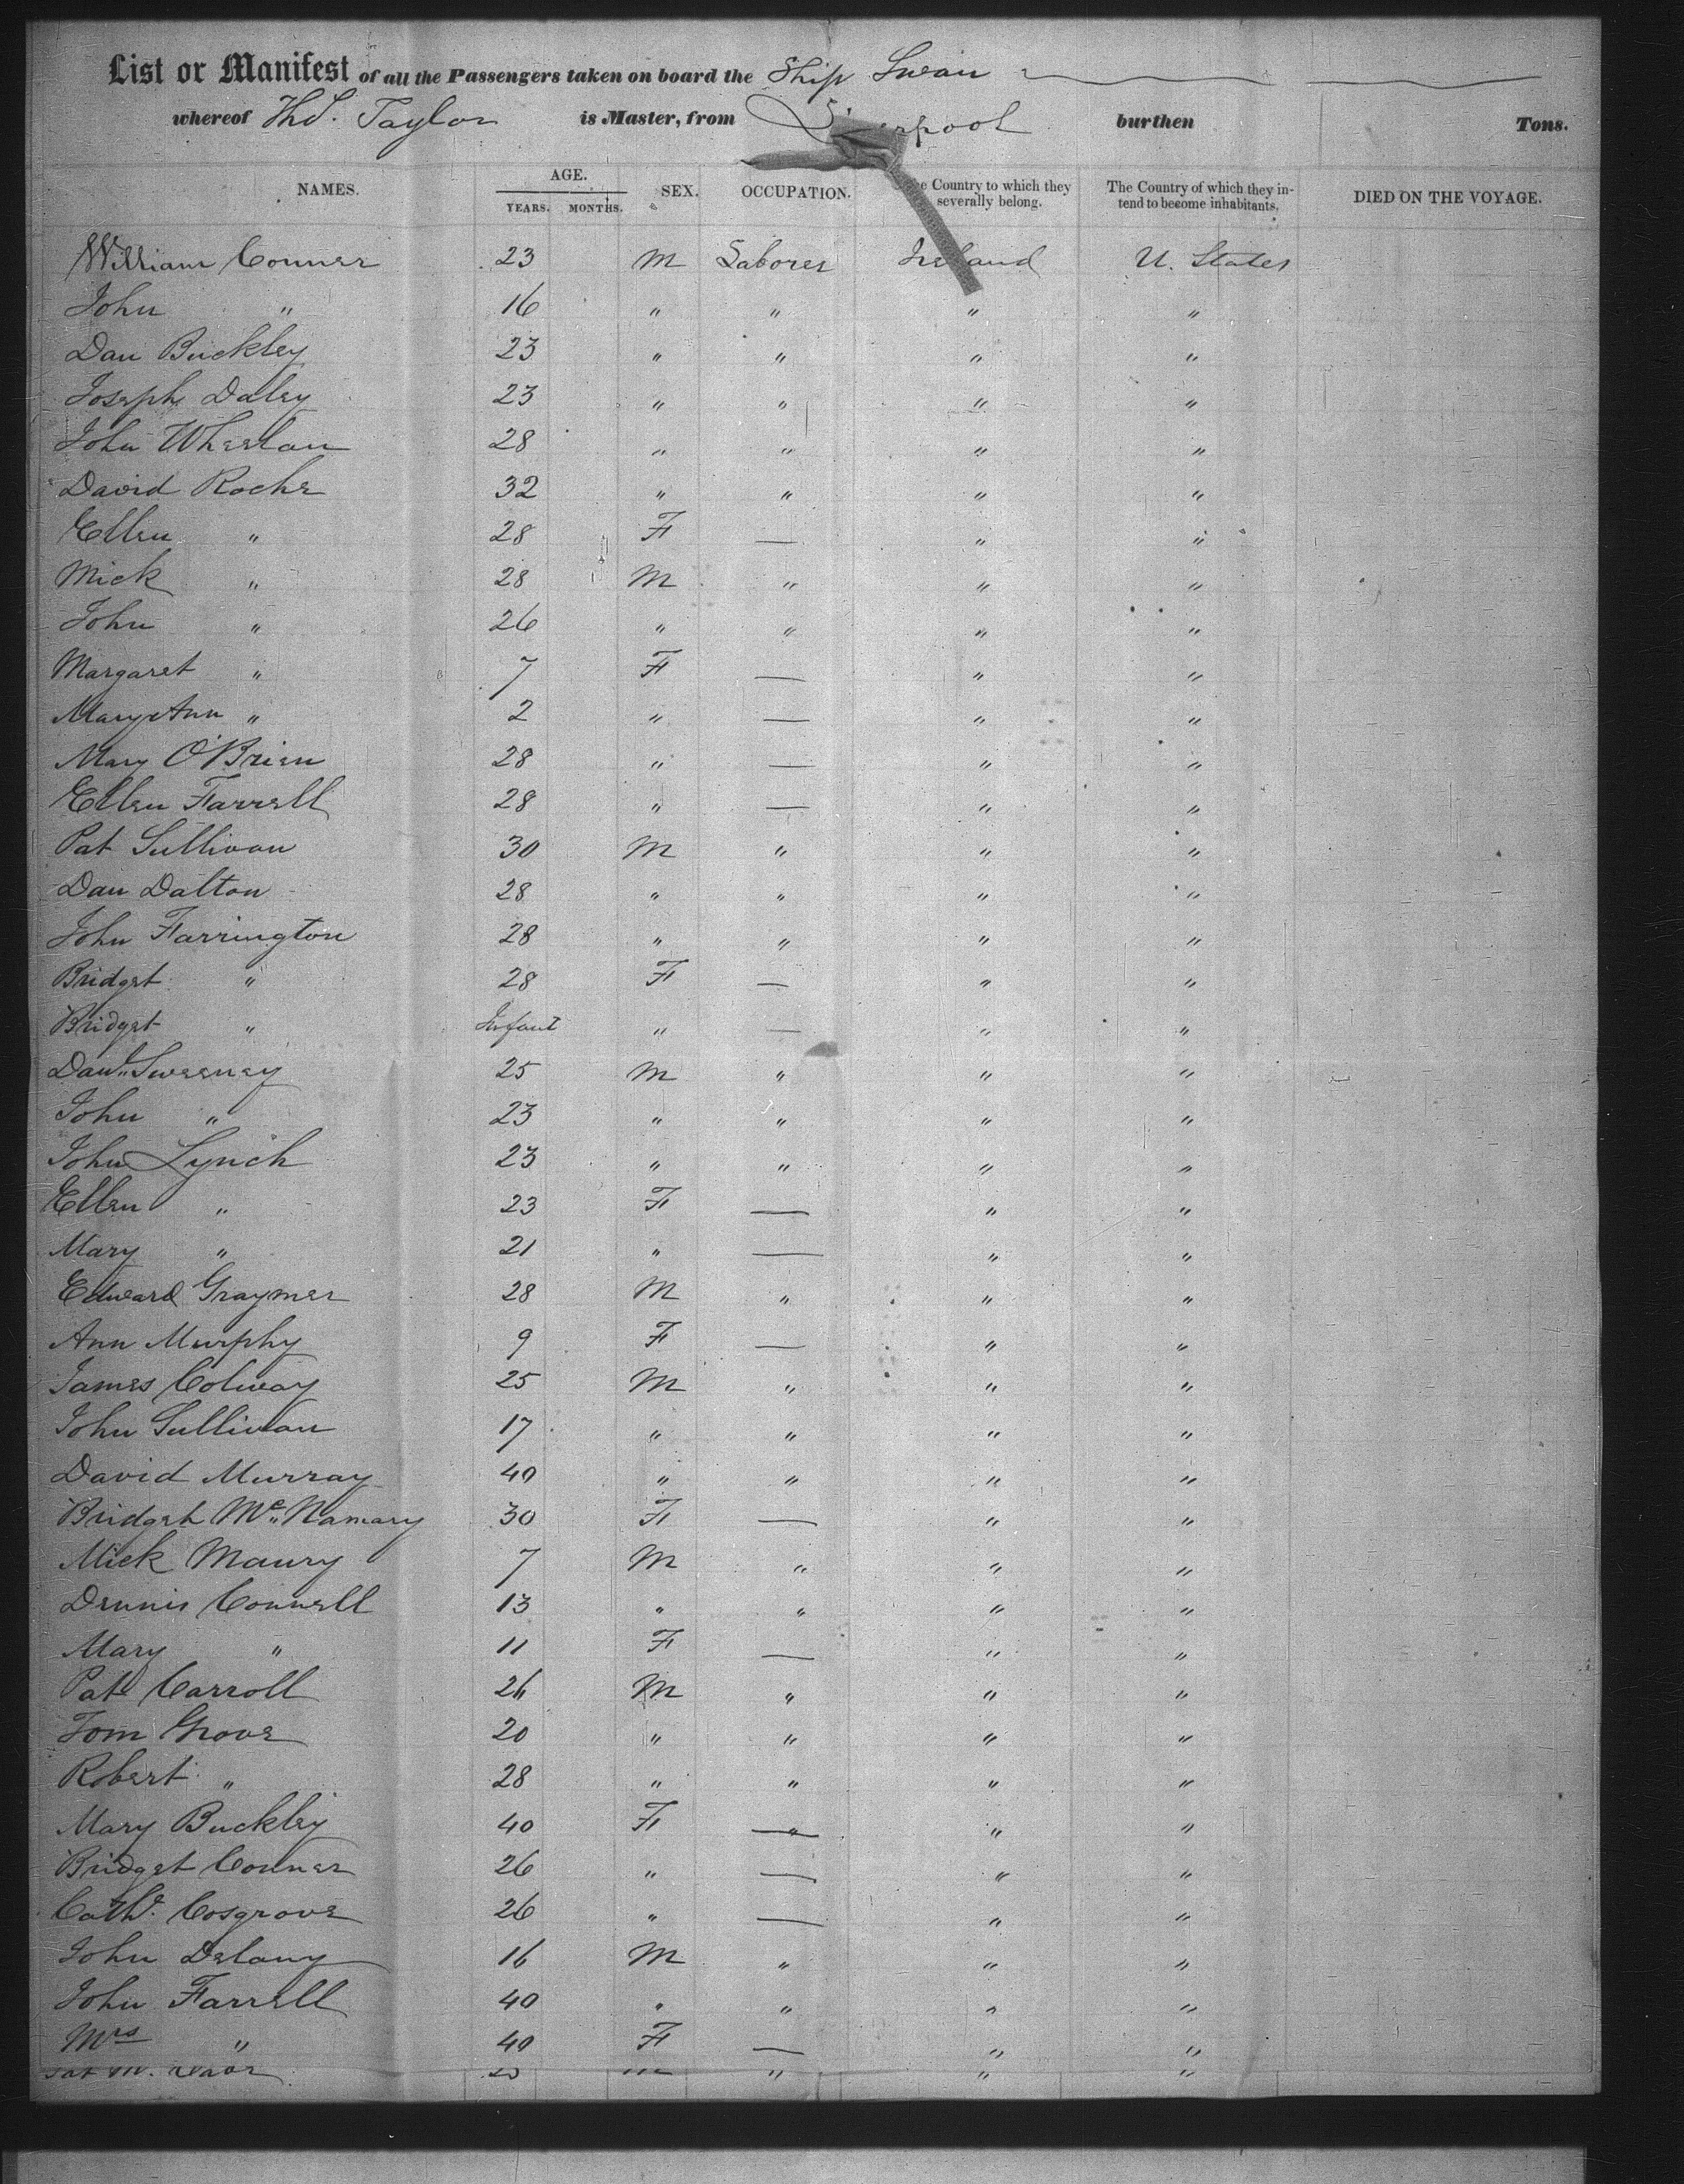 List or Manifest of all the Passengers taken on board the Ship Swan
whereof Thos. Taylor is Master, from Liverpool burthen Tons.
NAMES. AGE. YEARS. MONTHS. SEX. OCCUPATION. Country to which they severally belong. The Country of which they intend to become inhabitants. DIED ON THE VOYAGE.
William Conner 23 M Laborer Ireland U. States
John " 16 " " " "
Dan Buckley 23 " " " "
Joseph Daley 23 " " " "
John Wheelan 28 " " " "
David Roche 32 " " " "
Ellen " 28 F — " "
Mick " 28 M " " "
John " 26 " " " "
Margaret " 7 F — " "
Mary Ann " 2 " — " "
Mary O'Brien 28 " — " "
Ellen Farrell 28 " — " "
Pat Sullivan 30 M " " "
Dan Dalton 28 " " " "
John Farrington 28 " " " "
Bridget " 28 F — " "
Bridget " Infant " — " "
Danl. Sweeney 25 M " " "
John " 23 " " " "
John Lynch 23 " " " "
Ellen " 23 F — " "
Mary " 21 " — " "
Edward Graymer 28 M " " "
Ann Murphy 9 F — " "
James Colway 25 M " " "
John Sullivan 17 " " " "
David Murray 40 " " " "
Bridget Mc Namary 30 F — " "
Mick Maury 7 M " " "
Dennis Connell 13 " " " "
Mary " 11 F — " "
Pat Carroll 26 M " " "
Tom Grove 20 " " " "
Robert " 28 " " " "
Mary Buckley 40 F — " "
Bridget Conner 26 " — " "
Cathe. Cosgrove 26 " — " "
John Delany 16 M " " "
John Farrell 40 " " " "
Mrs " 40 F — " "
Pat M. " " "